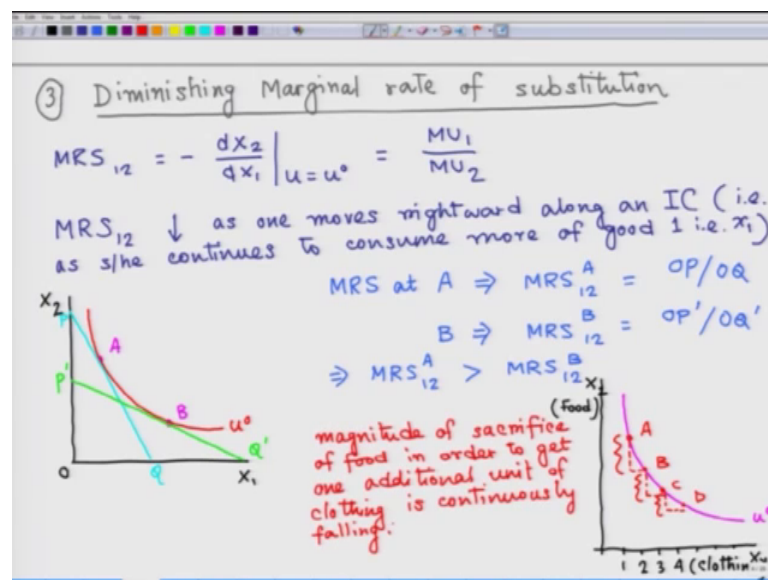 ③ Diminishing Marginal rate of substitution
MRS₁₂ = - dX₂/dX₁ | u=u⁰ = MU₁/MU₂
MRS₁₂ ↓ as one moves rightward along an IC (i.e.
as s/he continues to consume more of good 1 i.e. x₁)
MRS at A ⇒ MRS₁₂ᴬ = OP/OQ
B ⇒ MRS₁₂ᴮ = OP'/OQ'
⇒ MRS₁₂ᴬ > MRS₁₂ᴮ
X₂
P
A
P'
B
u⁰
Q'
O
Q
X₁
magnitude of sacrifice
of food in order to get
one additional unit of
clothing is continuously
falling.
(Food)
A
B
C
D
1 2 3 4 (clothin